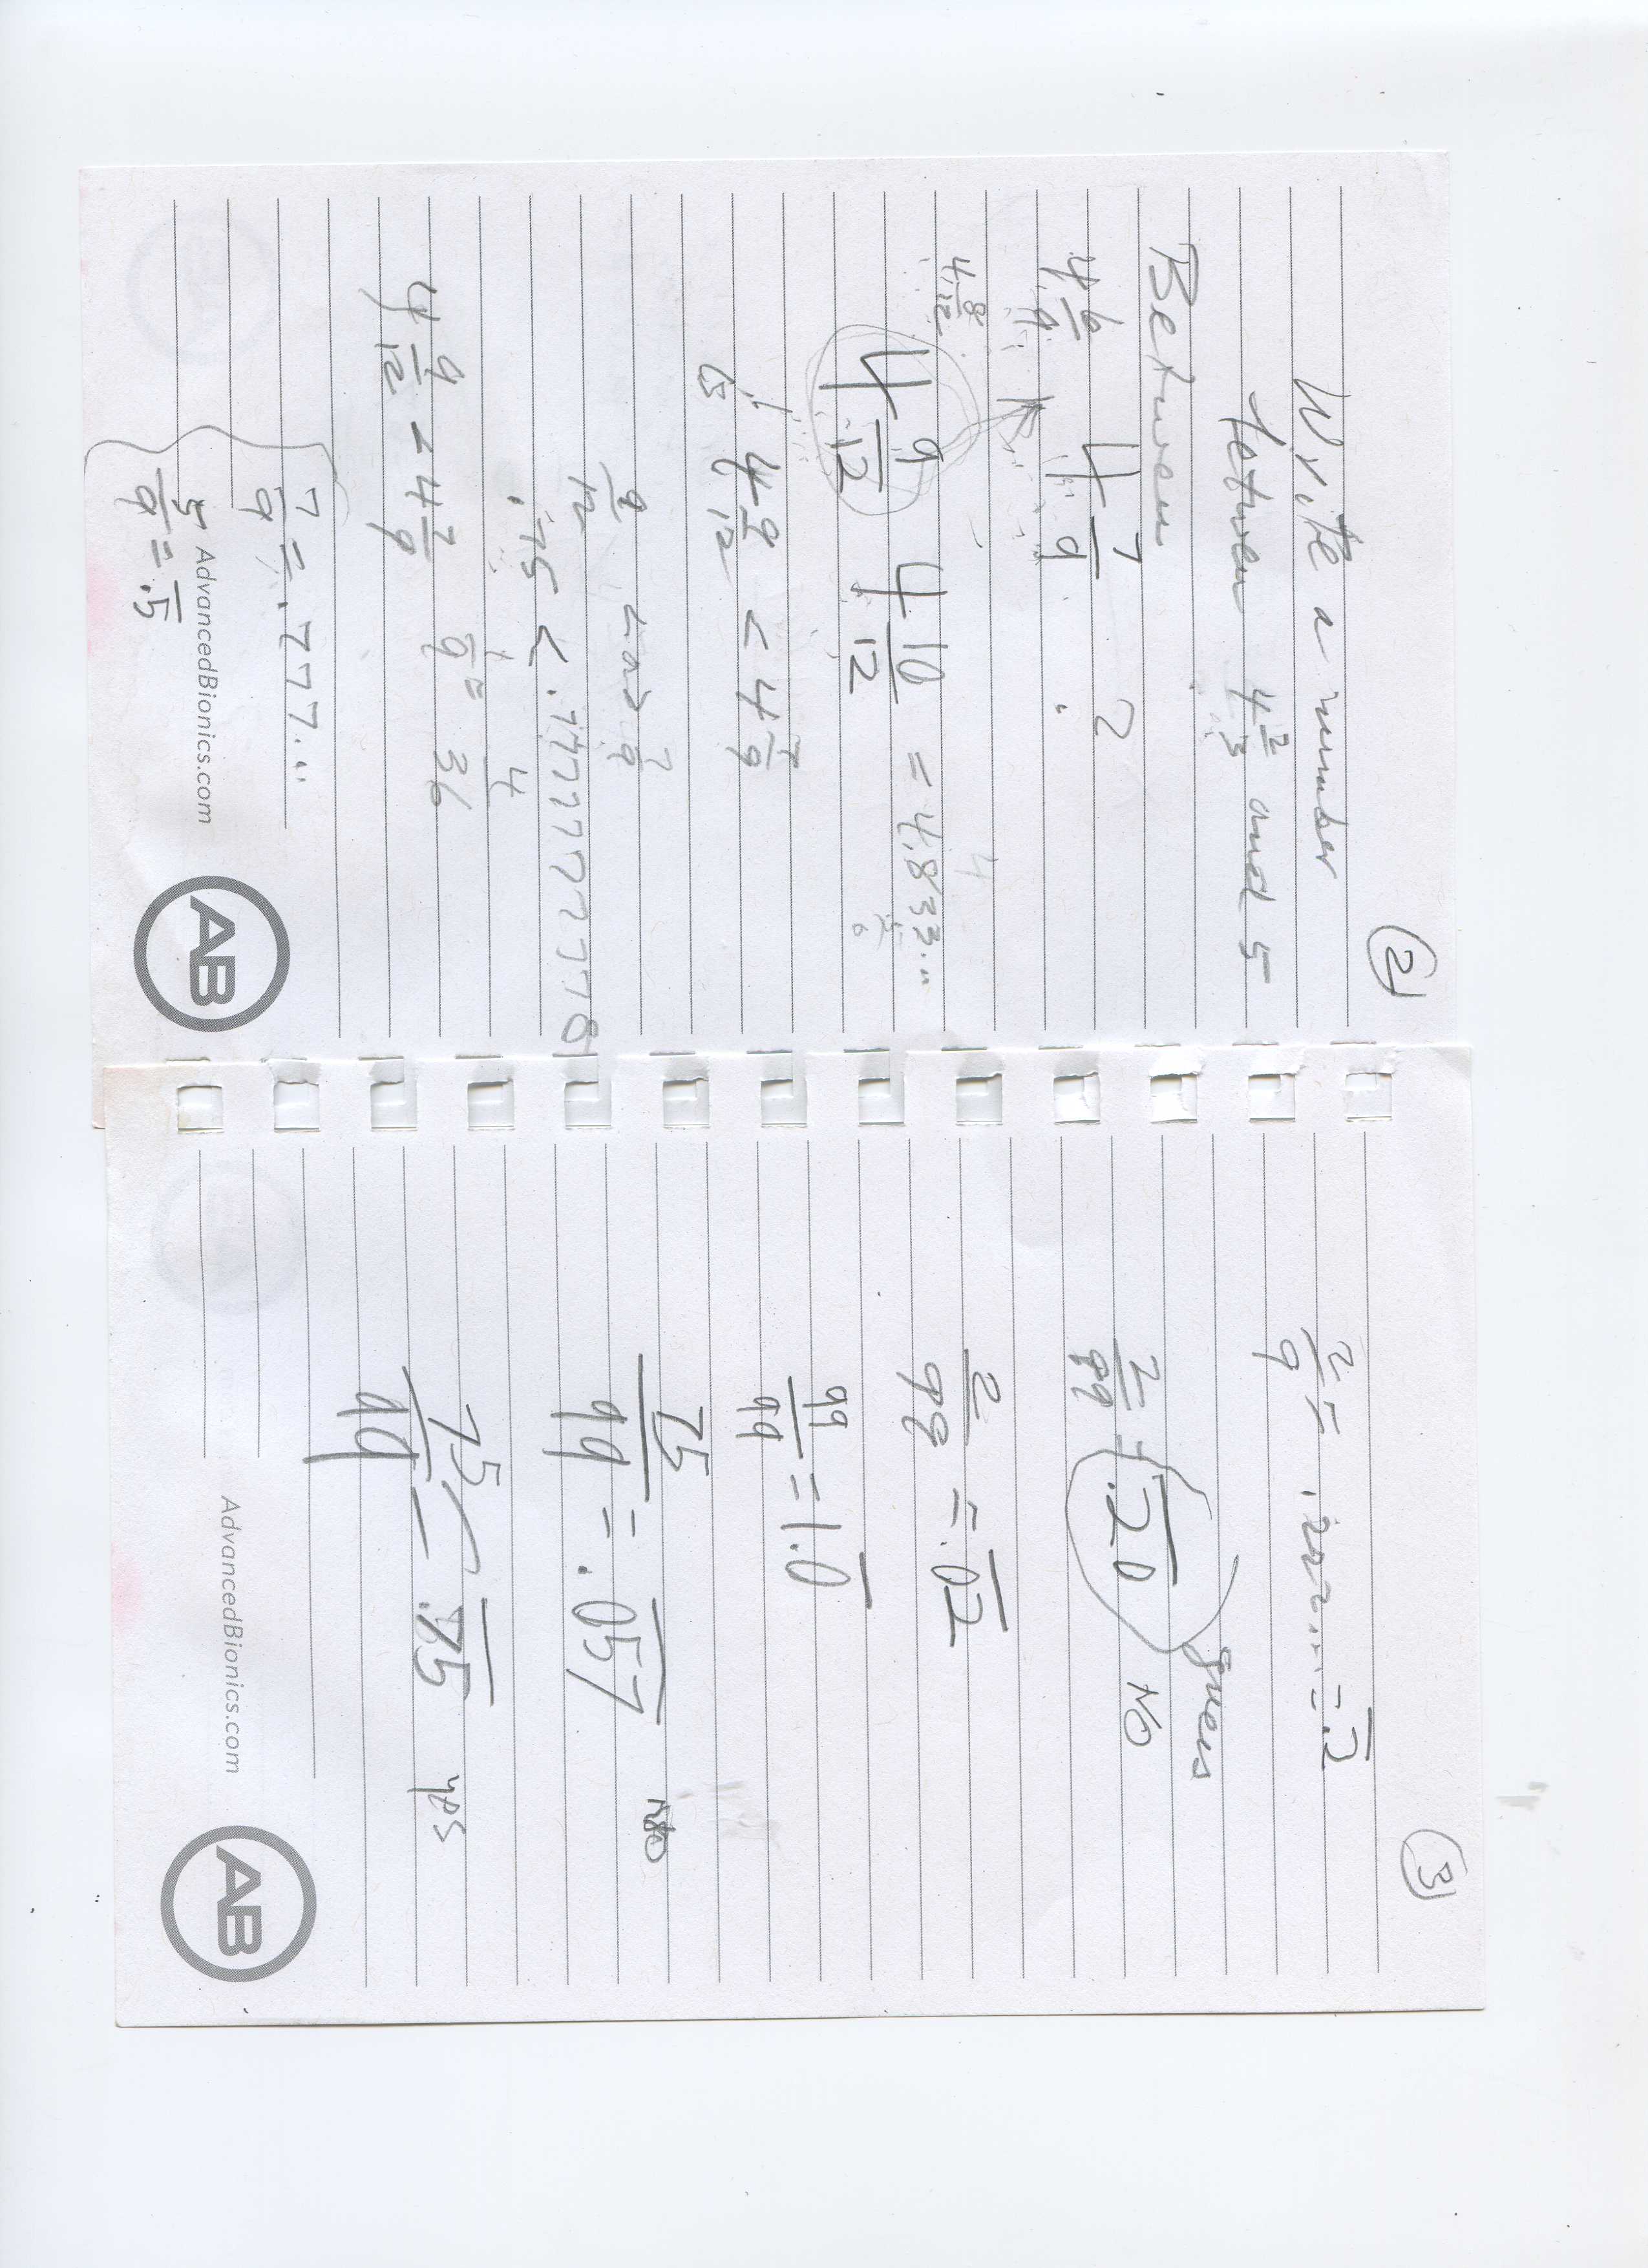 ②
Write a number
between 4 2/3 and 5
Between
4 6/9 4 7/9 2
4 8/12 4 9/12 4 10/12 = 4.833...
is 4 9/12 < 4 7/9
9/12 and 7/9
.75 < .7777777778
4 9/12 < 4 7/9
4/36
7/9 = .777...
5/9 = .5̅
AdvancedBionics.com
AB
③
2/9 = .222... = .2̅
2/99 = .2̅0̅ guess NO
2/99 = .0̅2̅
99/99 = 1.0̅
75/99 = .0̅5̅7̅
75/99 = .7̅5̅ yes
AdvancedBionics.com
AB